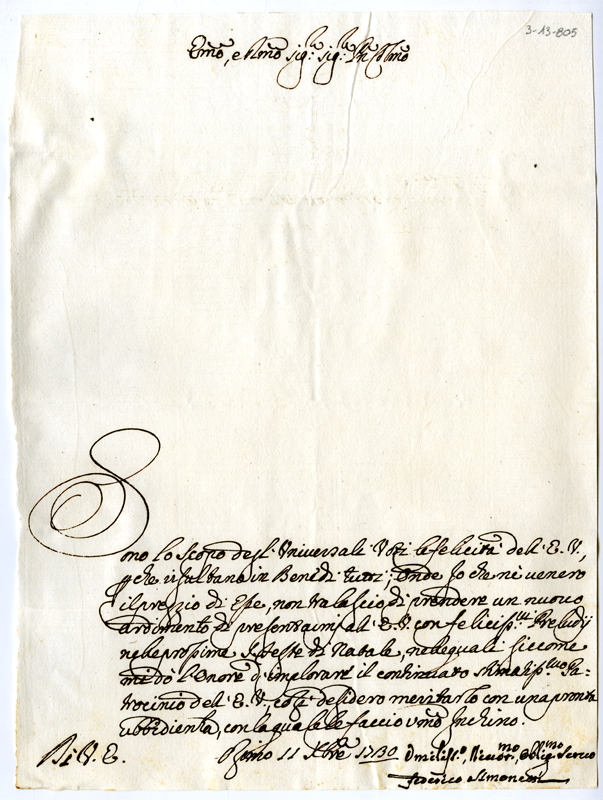 3-13-805
Emo, e Rmo Sig:r Sig:r Pne Colmo
Sono lo Scopo degl' Universali Voti le felicità dell' E. V.,
che risultano in Bene di tutti; Onde Io che ne venero
il preggio di Esse, non tralascio di prendere un nuovo
ardimento di presentarmi all' E. V. con feliciss:mi Preludij
nelle prossime S: feste di Natale, nelle quali siccome
mi dò l'Onore d'implorare il continuato stimatiss:mo Pa-
trocinio dell' E. V. così desidero meritarlo con una pronta
ubbidienza, con la quale le faccio umo Inchino.
Di V. E. Roma 11 Xbre 1730 Umiliss:o, Divotmo, Obligmo Servo
Federico Simonetti